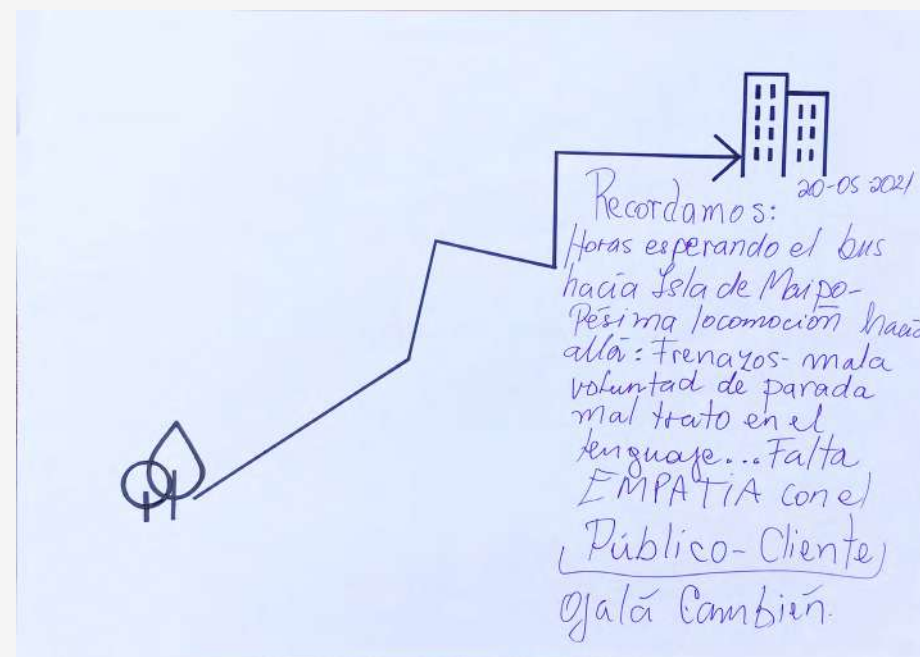 20-05-2021
Recordamos:
Horas esperando el bus
hacía Isla de Maipo-
Pésima locomoción hacia
allá: Frenazos- mala
voluntad de parada
mal trato en el
lenguaje... Falta
EMPATíA con el
Público-Cliente
Ojalá Cambién.